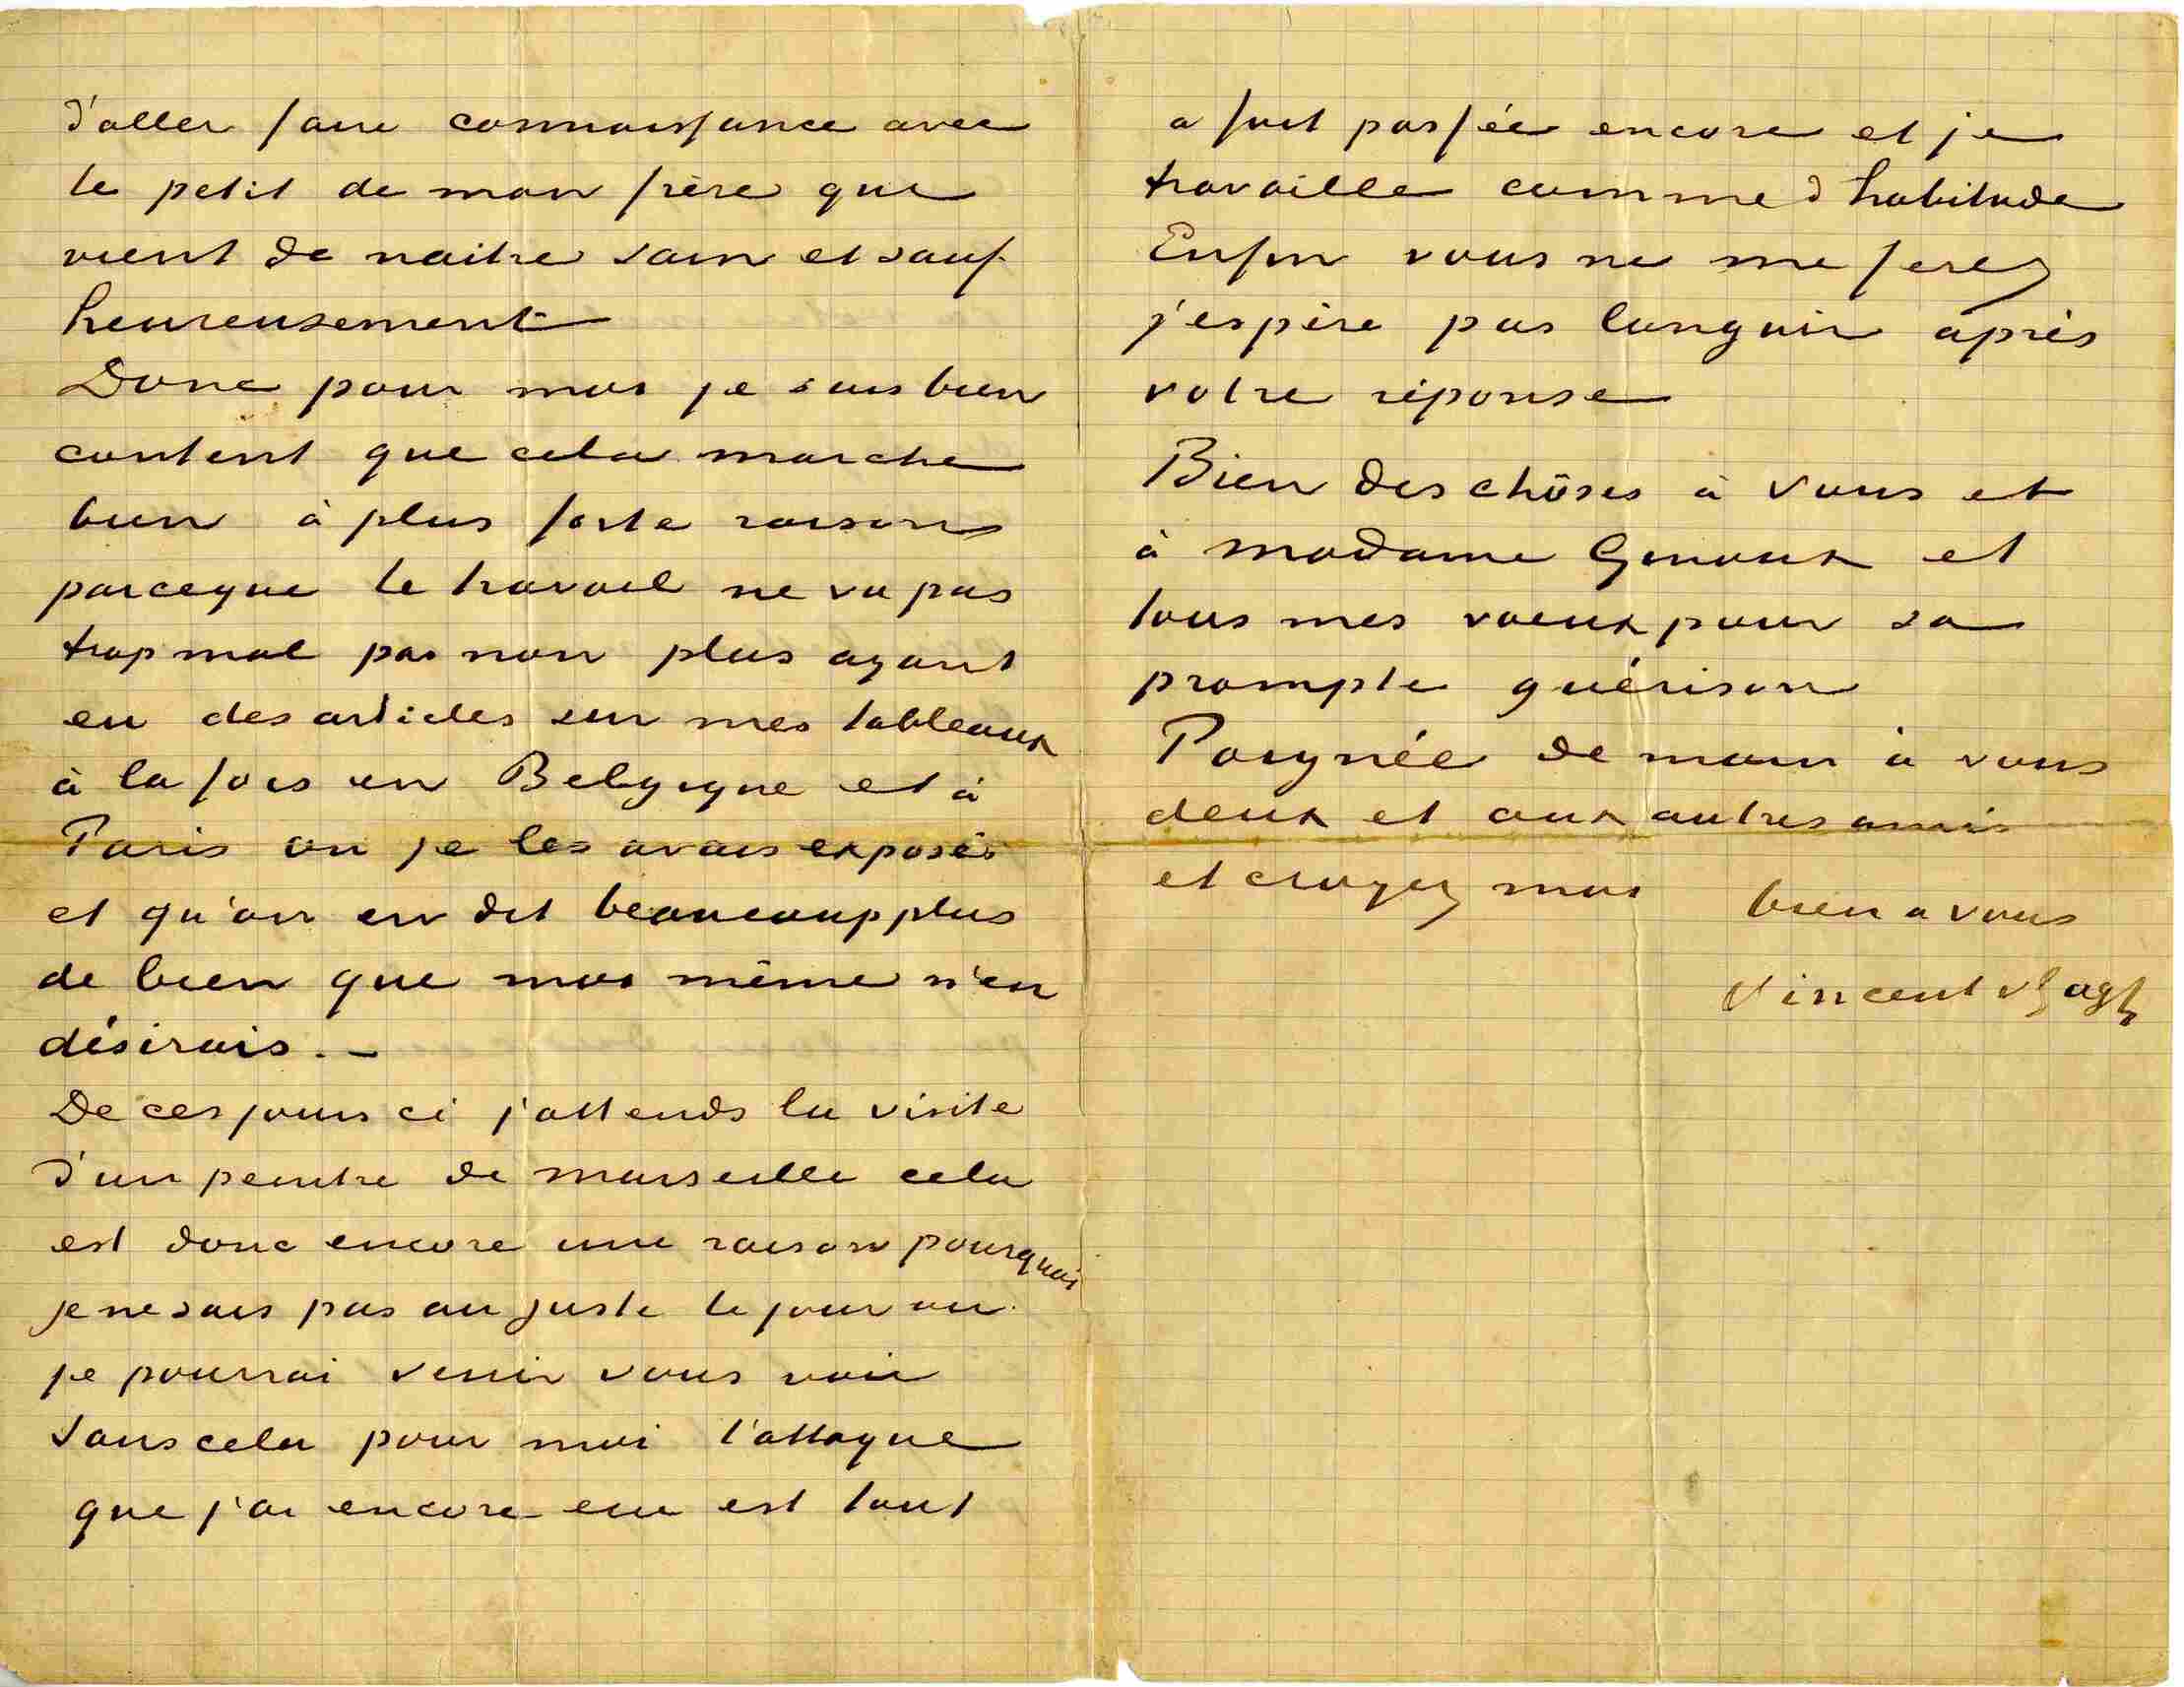 d'aller faire connaissance avec
le petit de mon frère qui
vient de naitre sain et sauf
heureusement
Donc pour moi je suis bien
content que cela marche
bien à plus forte raison
parceque le travail ne va pas
trop mal pas non plus ayant
eu des articles sur mes tableaux
à la fois en Belgique et à
Paris ou je les avais exposés
et qu'on en dit beaucoup plus
de bien que moi même n'en
désirais. —
De ces jours ci j'attends la visite
d'un peintre de marseille cela
est donc encore une raison pourquoi
je ne sais pas au juste le jour ou
je pourrai venir vous voir
Sans cela pour moi l'attaque
que j'ai encore eue est tout
a fait passée encore et je
travaille comme d habitude
Enfin vous ne me ferez
j'espère pas languir après
votre réponse
Bien des chôses à vous et
à madame Ginoux et
tous mes voeux pour sa
prompte guérison
Poignée de main à vous
deux et aux autres amis
et croyez moi bien a vous
Vincent v Gogh